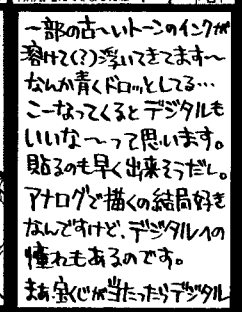 一部の古〜いトーンのインクが
溶けて(?)浮いてきてます〜
なんか青くドロッとしてる…
こーなってくるとデジタルも
いいな〜って思います。
貼るのも早く出来そうだし。
アナログで描くの結局好き
なんですけど、デジタルへの
憧れもあるのです。
まあ、宝くじが当たったらデジタル